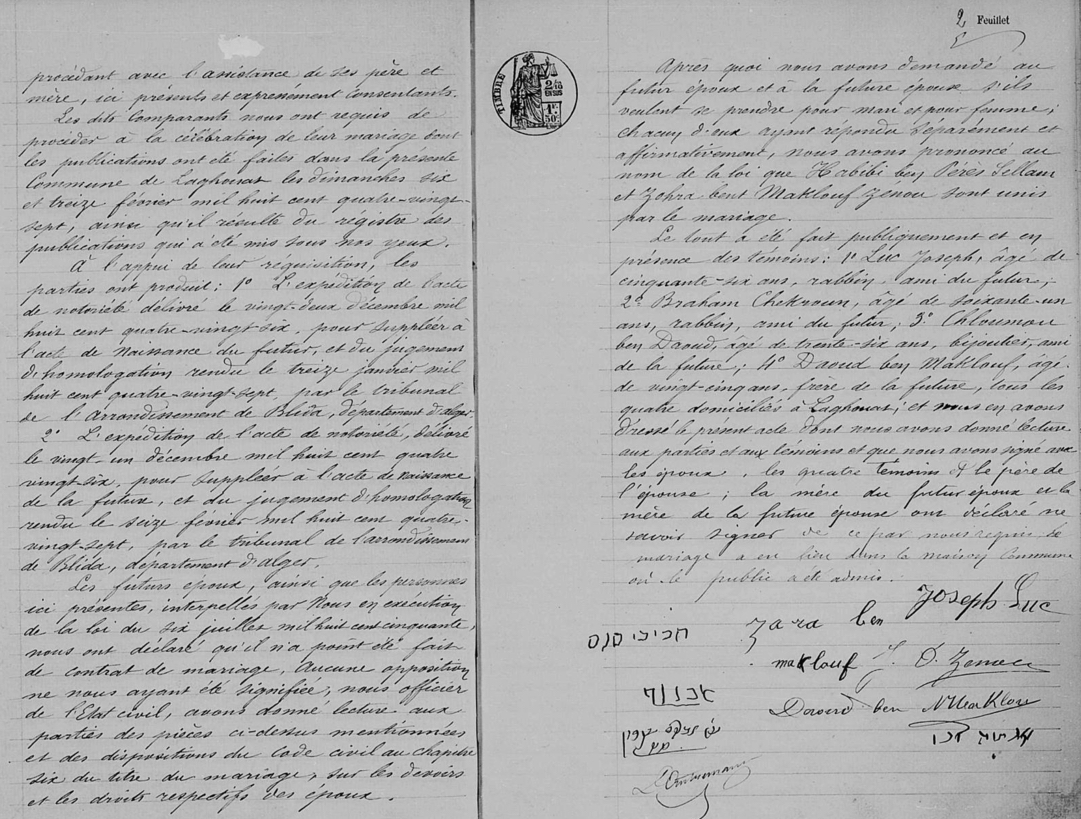 procédant avec l'assistance de ses père et
mère, ici présents et expressément consentants.
Les dits Comparants nous ont requis de
procéder à la célébration de leur mariage dont
les publications ont été faites dans la présente
Commune de Laghouat les dimanches six
et treize février mil huit cent quatre-vingt-
sept, ainsi qu'il résulte du registre des
publications qui a été mis sous nos yeux.
À l'appui de leur réquisition, les
parties ont produit : 1° L'expédition de l'acte
de notoriété délivré le vingt-deux décembre mil
huit cent quatre-vingt-six, pour suppléer à
l'acte de naissance du futur, et du jugement
d'homologation rendu le treize janvier mil
huit cent quatre-vingt-sept, par le tribunal
de l'Arrondissement de Blida, département d'alger.
2° L'expédition de l'acte de notoriété, délivré
le vingt-un décembre mil huit cent quatre
vingt-six, pour suppléer à l'acte de naissance
de la future, et du jugement d'homologation
rendu le seize février mil huit cent quatre-
vingt-sept, par le tribunal de l'arrondissement
de Blida, département d'alger.
Les futurs époux, ainsi que les personnes
ici présentes, interpellés par Nous en exécution
de la loi du six juillet mil huit cent cinquante,
nous ont déclaré qu'il n'a point été fait
de contrat de mariage, Aucune opposition
ne nous ayant été signifiée, nous officier
de l'Etat civil, avons donné lecture aux
parties des pièces ci-dessus mentionnées
et des dispositions du Code civil au chapitre
six du titre du mariage, sur les devoirs
et les droits respectifs des époux.
2 Feuillet
TIMBRE
Après quoi nous avons demandé au
futur époux et à la future épouse s'ils
veulent se prendre pour mari et pour femme ;
chacun d'eux ayant répondu séparément et
affirmativement, nous avons prononcé au
nom de la loi que Habibi ben Pérès Sellam
et Zohra bent Maklouf Zenou sont unis
par le mariage.
Le tout a été fait publiquement et en
présence des témoins : 1° Luc Joseph, âgé de
cinquante-six ans, rabbin, ami du futur ;
2° Braham Chekroun, âgé de soixante-un
ans, rabbin, ami du futur ; 3° Chloumou
ben Daoud, agé de trente-six ans, bijoutier, ami
de la future ; 4° Daoud ben Maklouf, âgé
de vingt-cinq ans, frère de la future, tous les
quatre domiciliés à Laghouat ; et nous en avons
dressé le présent acte dont nous avons donné lecture
aux parties et aux témoins et que nous avons signé avec
les époux, les quatre témoins & le père de
l'épouse ; la mère du futur époux et la
mère de la future épouse ont déclaré ne
savoir signer de ce par nous requis. Le
mariage a eu lieu dans la maison Commune
où le public a été admis.
Joseph Luc
חביבי פרס
zara ben
maklouf
Daoud ben Maklou